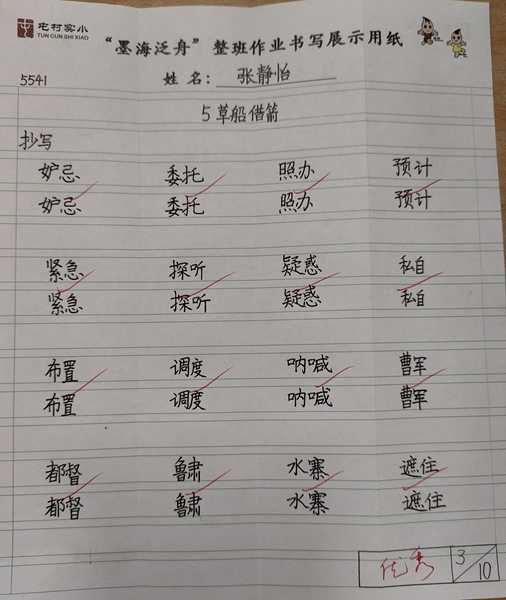 屯村实小
TUN CUN SHI XIAO
“墨海泛舟”整班作业书写展示用纸
5541 姓 名: 张静怡
5 草船借箭
抄写
妒忌 委托 照办 预计
妒忌 委托 照办 预计
紧急 探听 疑惑 私自
紧急 探听 疑惑 私自
布置 调度 呐喊 曹军
布置 调度 呐喊 曹军
都督 鲁肃 水寨 遮住
都督 鲁肃 水寨 遮住
优秀 3/10